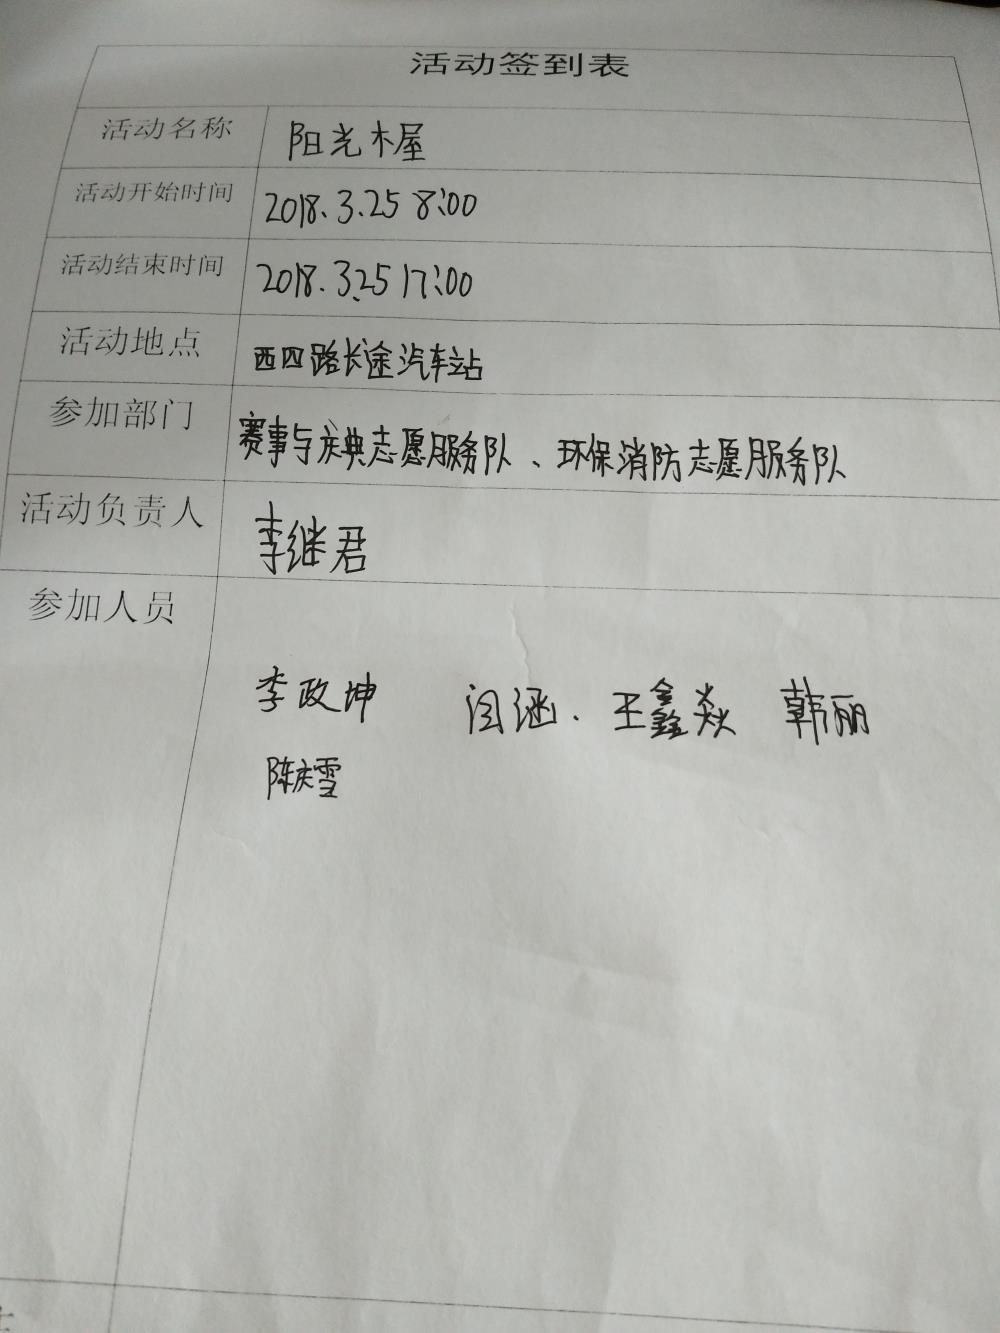 活动签到表
活动名称 阳光木屋
活动开始时间 2018.3.25 8:00
活动结束时间 2018.3.25 17:00
活动地点 西四路长途汽车站
参加部门 赛事与庆典志愿服务队、环保消防志愿服务队
活动负责人 李继君
参加人员
李政坤 闫涵. 王鑫焱 韩丽
陈庆雪